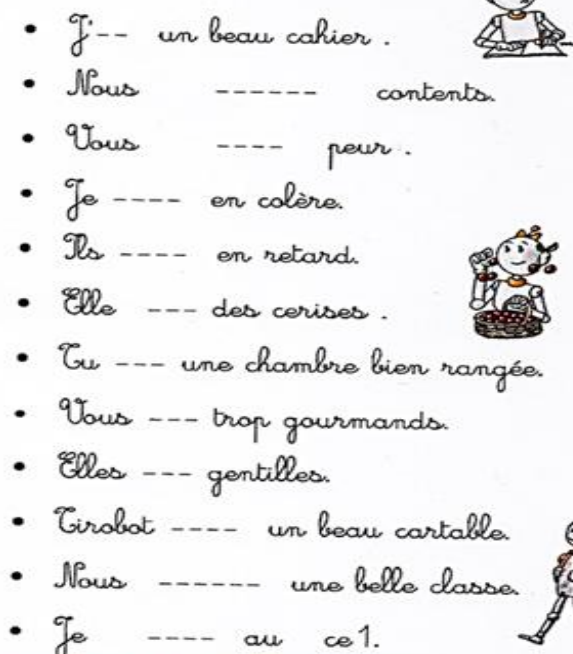 • J'-- un beau cahier .
• Nous ------ contents.
• Vous ---- peur .
• Je ---- en colère.
• Ils ---- en retard.
• Elle --- des cerises .
• Tu --- une chambre bien rangée.
• Vous --- trop gourmands.
• Elles --- gentilles.
• Tirobot ---- un beau cartable.
• Nous ------ une belle classe.
• Je ---- au ce1.